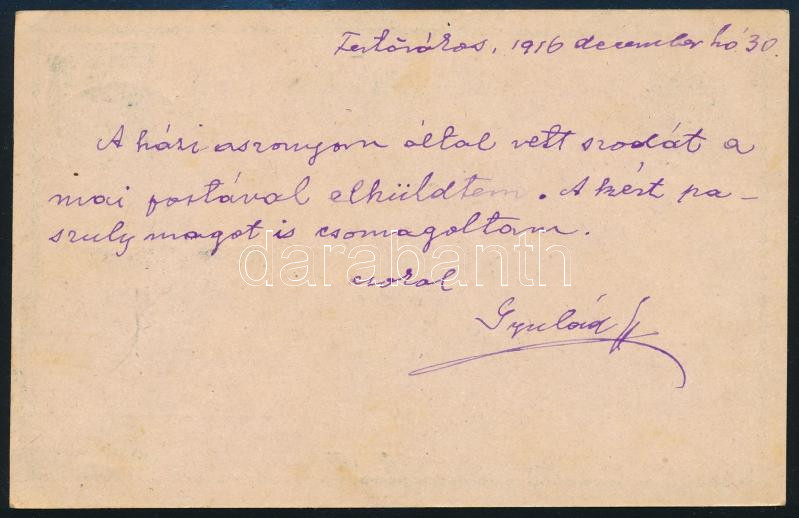 Fertőváros, 1916 december hó 30.
A házi aszonyom által vett szodát a
mai postával elküldtem. A kért pa-
szuly magot is csomagoltam.
csokol
Gyulád
darabanth